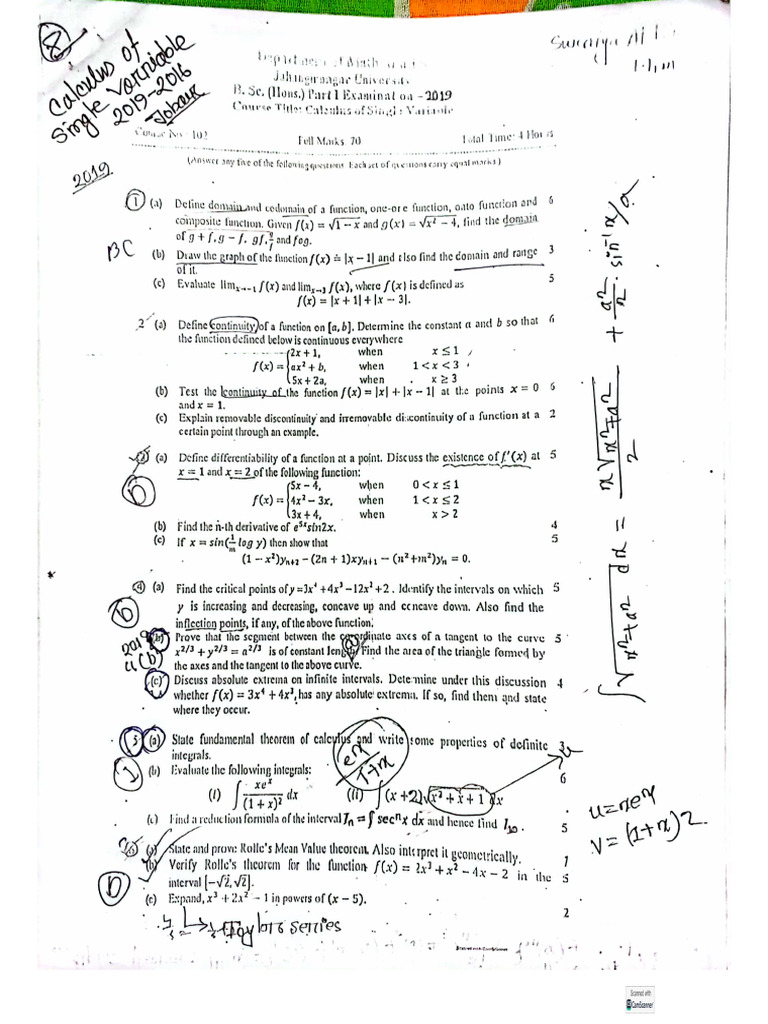 8
Calculus of
Single Varriable
2019-2016
Jahangirnagar University
B. Sc. (Hons.) Part I Examination - 2019
Course Title: Calculus of Single Variable
Course No - 102 Full Marks: 70 Total Time: 4 Hours
(Answer any five of the following questions. Each set of questions carry equal marks)
2019
1 (a) Define domain and codomain of a function, one-ore function, onto function and 6
composite function. Given f(x) = √1 − x and g(x) = √x² − 4, find the domain
of g + f, g − f, gf, g/f and fog.
BC
(b) Draw the graph of the function f(x) = |x − 1| and also find the domain and range 3
of it.
(c) Evaluate lim x→−1 f(x) and lim x→3 f(x), where f(x) is defined as 5
f(x) = |x + 1| + |x − 3|.
2 (a) Define continuity of a function on [a, b]. Determine the constant a and b so that 6
the function defined below is continuous everywhere
f(x) = { 2x + 1, when x ≤ 1
ax² + b, when 1 < x < 3
5x + 2a, when x ≥ 3
(b) Test the continuity of the function f(x) = |x| + |x − 1| at the points x = 0 6
and x = 1.
(c) Explain removable discontinuity and irremovable discontinuity of a function at a 2
certain point through an example.
3 (a) Define differentiability of a function at a point. Discuss the existence of f′(x) at 5
x = 1 and x = 2 of the following function:
D
f(x) = { 5x − 4, when 0 < x ≤ 1
4x² − 3x, when 1 < x ≤ 2
3x + 4, when x > 2
(b) Find the n-th derivative of e⁵ˣsin2x. 4
(c) If x = sin(1/m log y) then show that 5
(1 − x²)yₙ₊₂ − (2n + 1)xyₙ₊₁ − (n² + m²)yₙ = 0.
4 (a) Find the critical points of y = 3x⁴ + 4x³ − 12x² + 2. Identify the intervals on which 5
y is increasing and decreasing, concave up and concave down. Also find the
inflection points, if any, of the above function.
(b) Prove that the segment between the coordinate axes of a tangent to the curve 5
4(b)
x^2/3 + y^2/3 = a^2/3 is of constant length. Find the area of the triangle formed by
the axes and the tangent to the above curve.
(c) Discuss absolute extrema on infinite intervals. Determine under this discussion 4
whether f(x) = 3x⁴ + 4x³, has any absolute extrema. If so, find them and state
where they occur.
5 (a) State fundamental theorem of calculus and write some properties of definite 3
integrals.
I
(b) Evaluate the following integrals: 6
(i) ∫ xeˣ/(1 + x)² dx (ii) ∫(x + 2)√x² + x + 1 dx
eˣ/1+x
(c) Find a reduction formula of the interval Iₙ = ∫ secⁿx dx and hence find I₁₀. 5
(a) State and prove Rolle's Mean Value theorem. Also interpret it geometrically. 1
(b) Verify Rolle's theorem for the function f(x) = 2x³ + x² − 4x − 2 in the 5
interval [−√2, √2].
D
(c) Expand, x³ + 2x² − 1 in powers of (x − 5).
2
Taylors series
∫√x²+a² dx = x√x²+a²/2 + a²/2 . sin⁻¹ x/a
u=xeˣ
v=(1+x)2
Scanned with
CamScanner